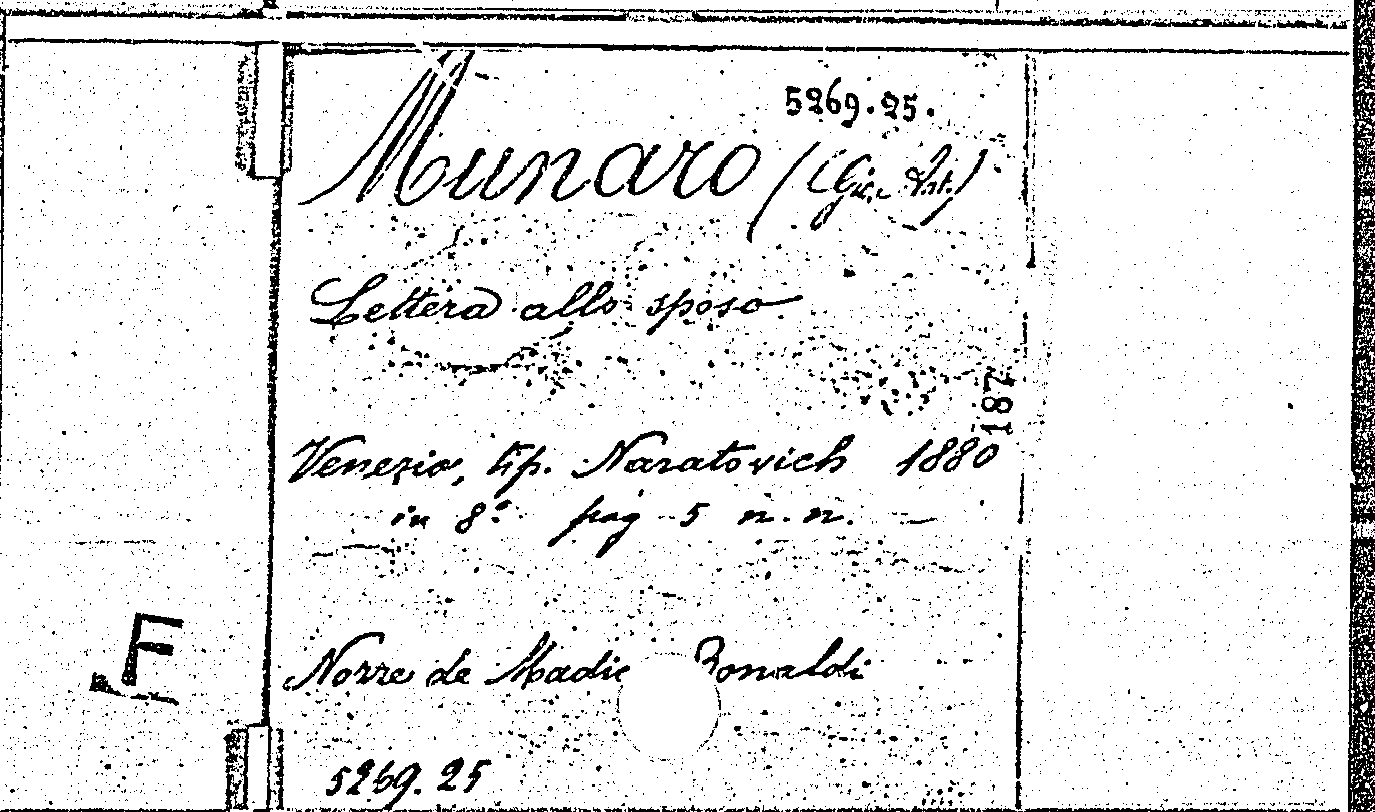 5269.25.
Munaro (Gio. Ant.)
Lettera allo sposo
187
Venezia, tip. Naratovich 1880
in 8º pag 5 n. n.
Nozze de Madic Bonaldi
F
5269.25